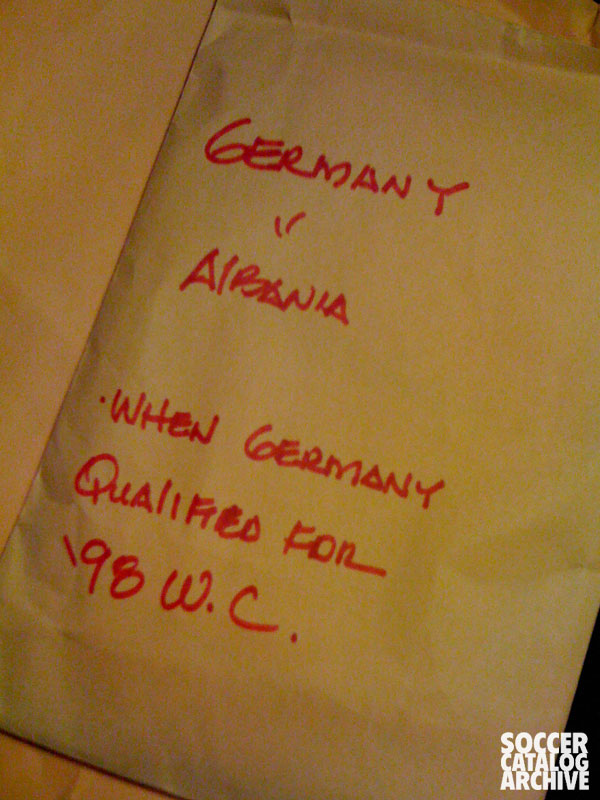 GERMANY
v
AlBANIA
·WHEN GERMANY
QUALIFIED FOR
'98 W.C.
SOCCER
CATALOG
ARCHIVE